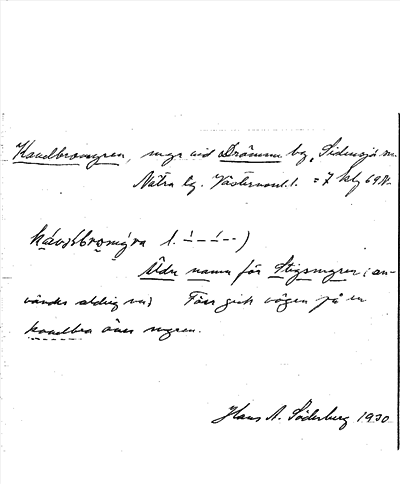 Kavelbromyren, myr vid Drömme by, Sidensjö sn.
Nätra tg. Västernorrl. l. = 7 kbg 69 N-
l.
Äldre namn för Stigsmyren; an-
vändes aldrig nu) Förr gick vägen på en
kavelbro över myren.
Hans A. Söderberg 1930